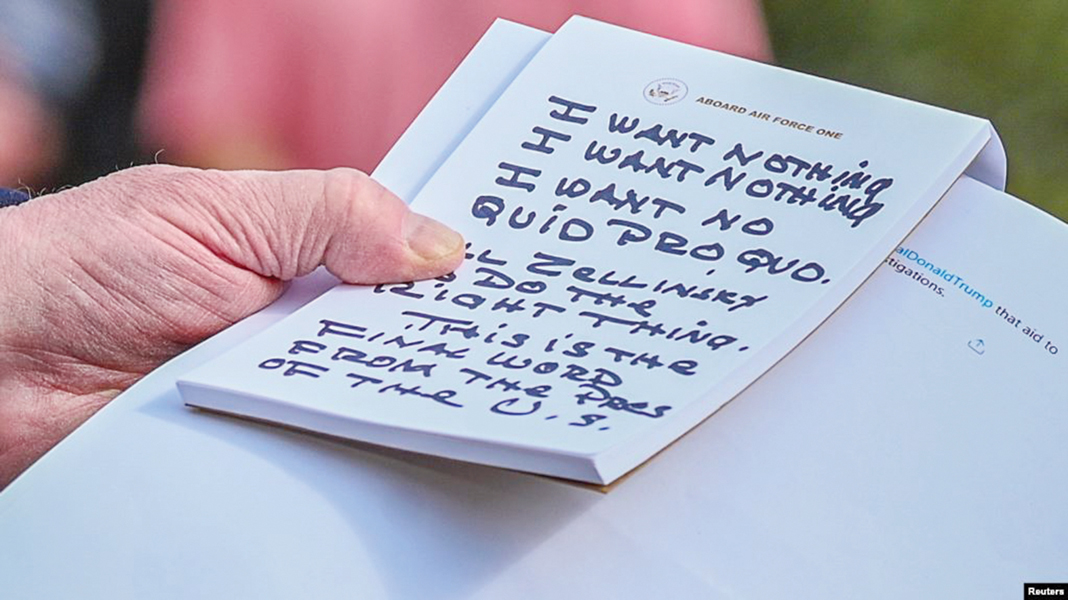 ABOARD AIR FORCE ONE
I WANT NOTHING
I WANT NOTHING
I WANT NO
QUID PRO QUO.
ZELLINSKY
DO THE
RIGHT THING.
THIS IS THE
FINAL WORD
FROM THE PRES
OF THE U.S.
alDonaldTrump that aid to
stigations.
Reuters